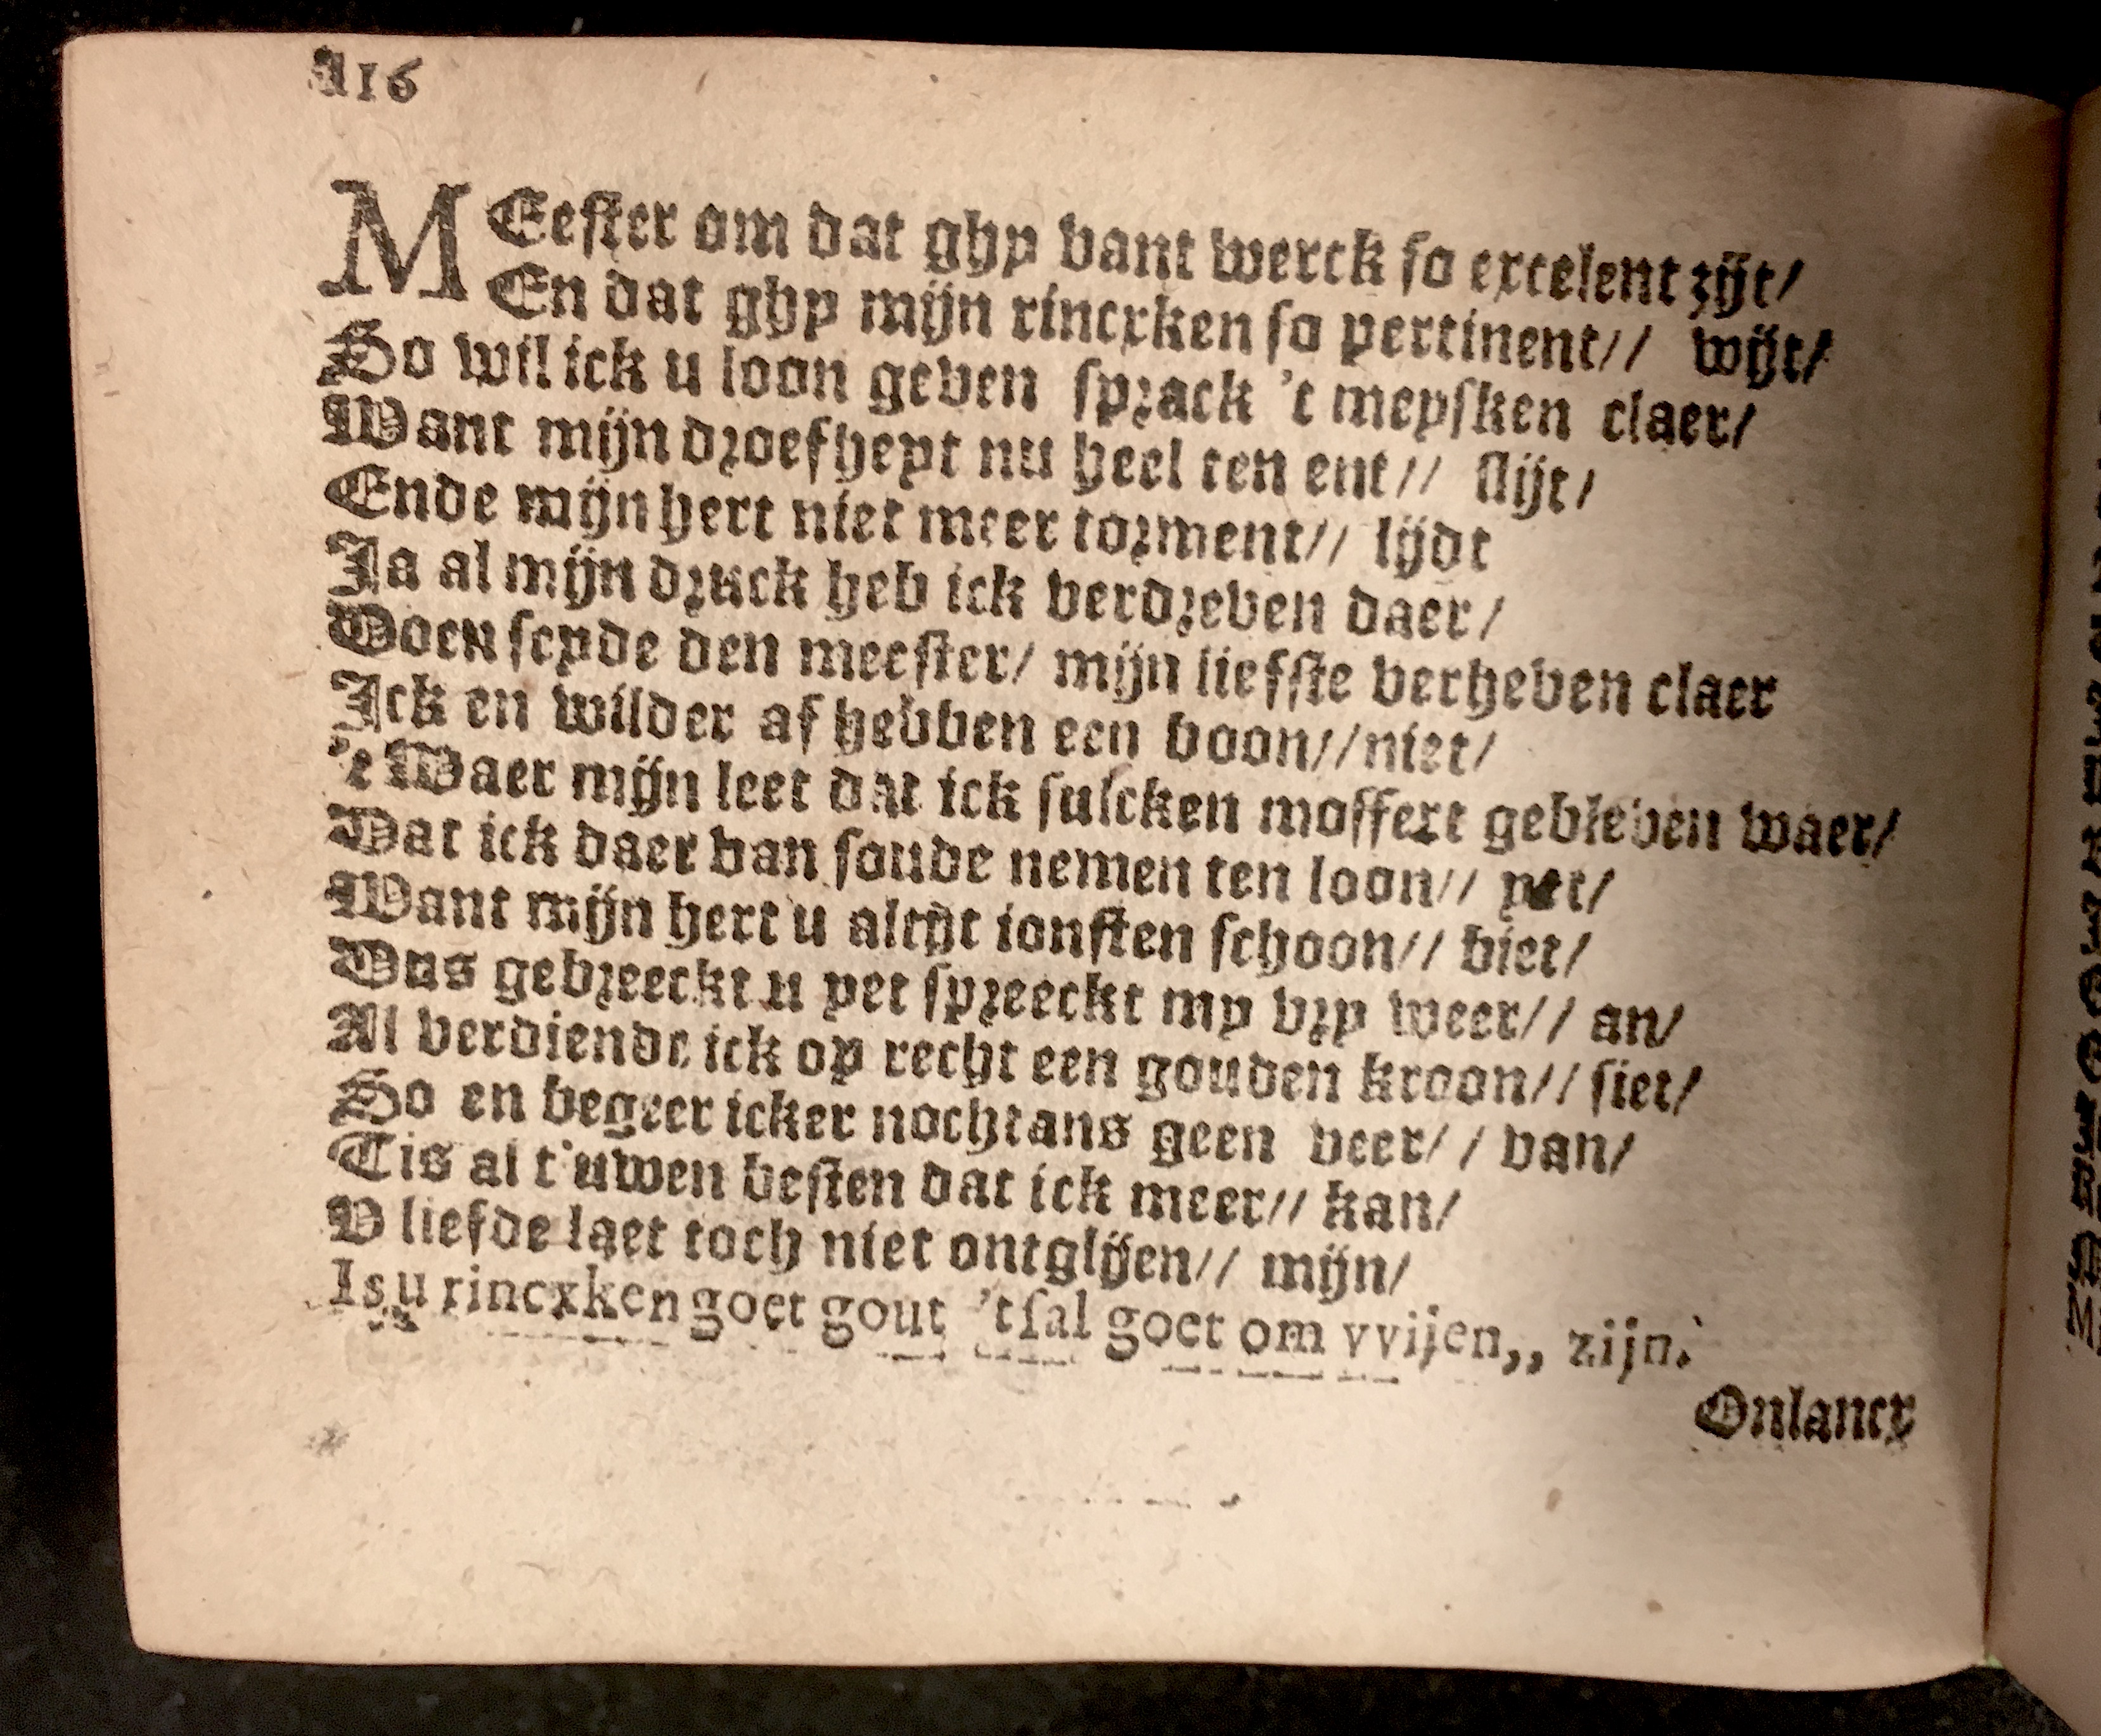 116
MEester om dat ghy vant werck so excelent zijt/
En dat ghy mijn rincxken so pertinent// wijt/
So wil ick u loon geven sprack 't meysken claer/
Want mijn droefheyt nu heel ten ent// slijt/
Ende mijn hert niet meer torment// lijdt
Ja al mijn druck heb ick verdreven daer/
Doen seyde den meester/ mijn liefste verheven claer
Ick en wilder af hebben een boon//niet/
't Waer mijn leet dat ick sulcken moffert gebleven waer/
Dat ick daer van soude nemen ten loon// yet/
Want mijn hert u altijt ionsten schoon// biet/
Dus gebreeckt u yet spreeckt my vry weer// an/
Al verdiende ick op recht een gouden kroon// siet/
So en begeer icker nochtans geen veer// van/
Tis al t'uwen besten dat ick meer// kan/
V liefde laet toch niet ontglijen// mijn/
Is u rincxken goet gout 'tsal goet om vvijen,, zijn.
Onlancx